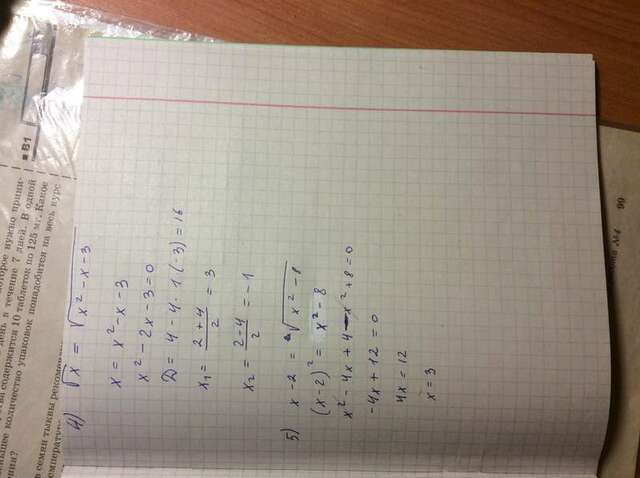 которое нужно прини-
день в течение 7 дней. В одной
содержится 10 таблеток по 125 мг. Какое
количество упаковок понадобится на весь курс
B1
семян тыквы
4) √x = √x² - x - 3
x = x² - x - 3
x² - 2x - 3 = 0
D = 4 - 4 · 1 (-3) = 16
x₁ = (2 + 4)/2 = 3
x₂ = (2 - 4)/2 = -1
5) x - 2 = √x² - 8
(x - 2)² = x² - 8
x² - 4x + 4 - x² + 8 = 0
-4x + 12 = 0
4x = 12
x = 3
№4 99